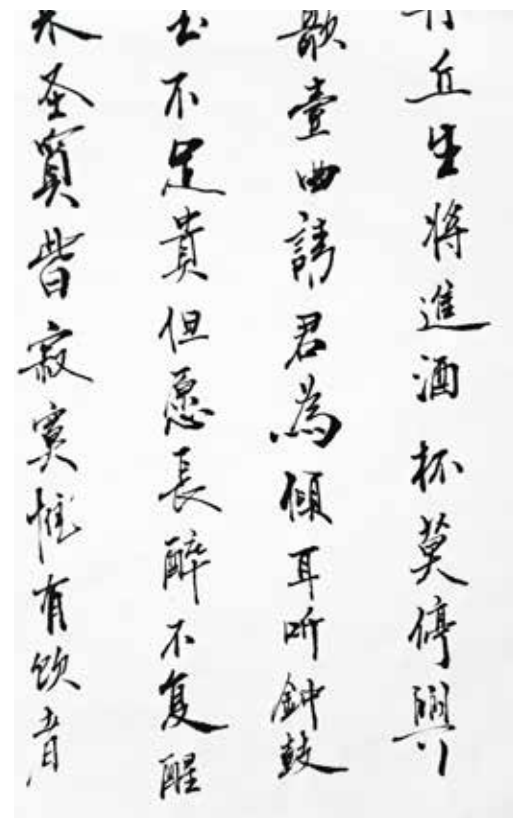 丘生將進酒杯莫停與
歌壹曲請君為傾耳听鈡鼓
玉不足貴但愿長醉不复醒
来圣賢皆寂寞惟有饮者